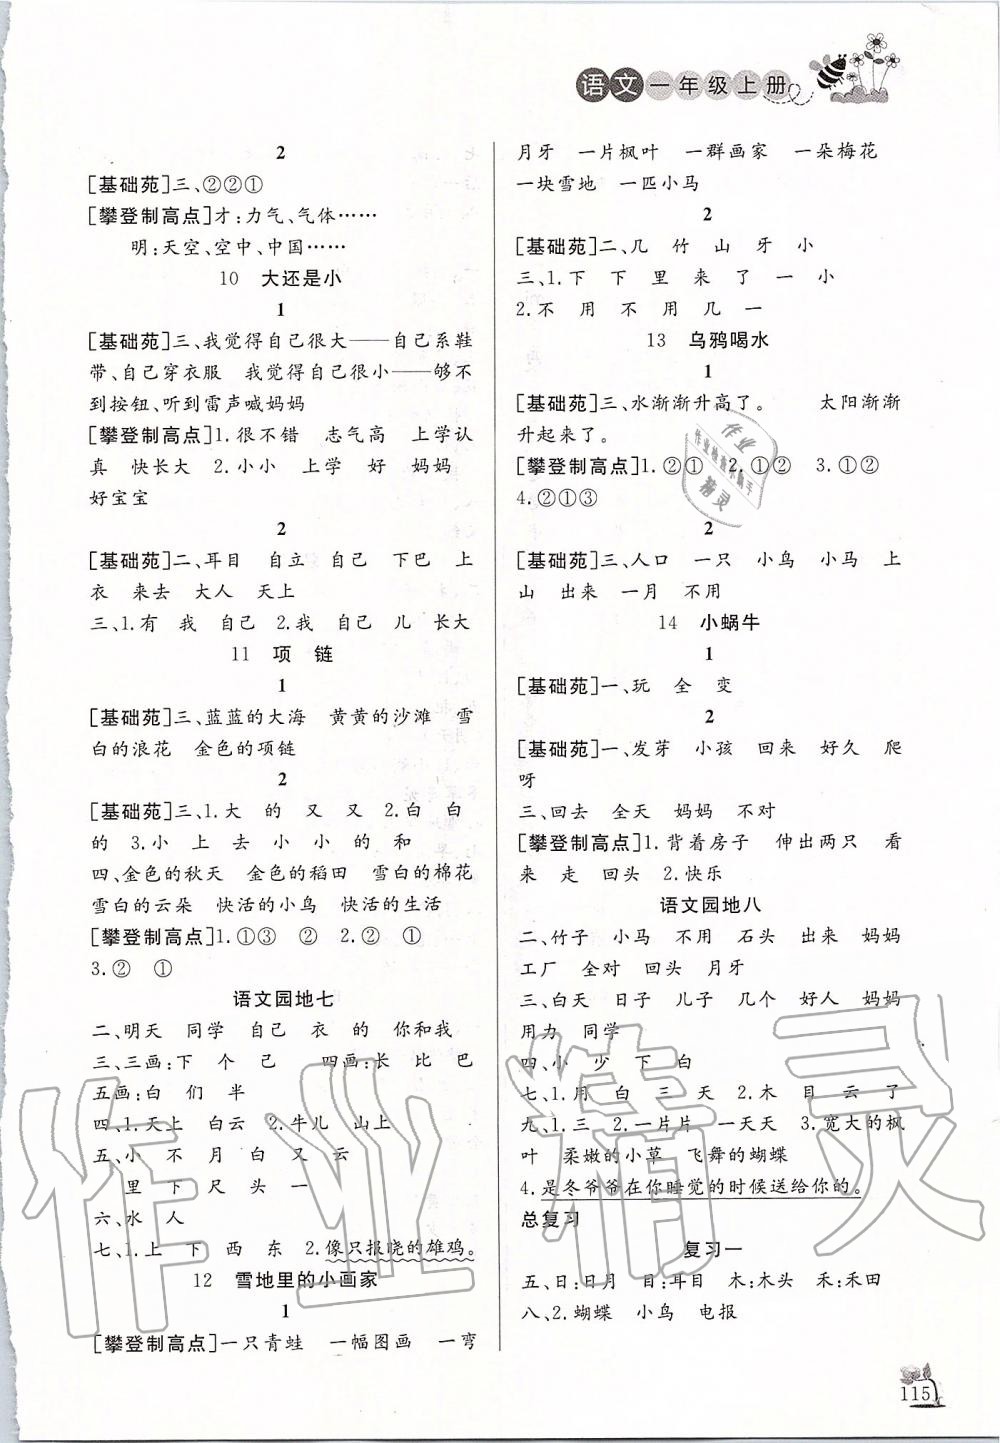 语文一年级上册
2
[基础苑]三、②②①
[攀登制高点]才:力气、气体……
明:天空、空中、中国……
10 大还是小
1
[基础苑]三、我觉得自己很大——自己系鞋
带、自己穿衣服 我觉得自己很小——够不
到按钮、听到雷声喊妈妈
[攀登制高点]1.很不错 志气高 上学认
真 快长大 2.小小 上学 好 妈妈
好宝宝
2
[基础苑]二、耳目 自立 自己 下巴 上
衣 来去 大人 天上
三、1.有 我 自己 2.我 自己 儿 长大
11 项 链
1
[基础苑]三、蓝蓝的大海 黄黄的沙滩 雪
白的浪花 金色的项链
2
[基础苑]三、1.大 的 又 又 2.白 白
的 3.小 上 去 小 小 的 和
四、金色的秋天 金色的稻田 雪白的棉花
雪白的云朵 快活的小鸟 快活的生活
[攀登制高点]1.①③ ② 2.② ①
3.② ①
语文园地七
二、明天 同学 自己 衣 的 你和我
三、三画:下 个 己 四画:长 比 巴
五画:白 们 半
四、1.天上 白云 2.牛儿 山上
五、小 不 月 白 又 云
里 下 尺 头 一
六、水 人
七、1.上 下 西 东 2.像只报晓的雄鸡。
12 雪地里的小画家
1
[攀登制高点]一只青蛙 一幅图画 一弯
月牙 一片枫叶 一群画家 一朵梅花
一块雪地 一匹小马
2
[基础苑]二、几 竹 山 牙 小
三、1.下 下 里 来 了 一 小
2.不 用 不 用 几 一
13 乌鸦喝水
1
[基础苑]三、水渐渐升高了。 太阳渐渐
升起来了。
[攀登制高点]1.②① 2.①② 3.①②
4.②①③
2
[基础苑]三、人口 一只 小鸟 小马 上
山 出来 一月 不用
14 小蜗牛
1
[基础苑]一、玩 全 变
2
[基础苑]一、发芽 小孩 回来 好久 爬
呀
三、回去 全天 妈妈 不对
[攀登制高点]1.背着房子 伸出两只 看
来 走 回头 2.快乐
语文园地八
二、竹子 小马 不用 石头 出来 妈妈
工厂 全对 回头 月牙
三、白天 日子 儿子 几个 好人 妈妈
用力 同学
四、小 少 下 白
七、1.用 白 三 天 2.木 目 云 了
九、1.三 2.一片片 一天天 3.宽大的枫
叶 柔嫩的小草 飞舞的蝴蝶
4.是冬爷爷在你睡觉的时候送给你的。
总复习
复习一
五、日:日月 目:耳目 木:木头 禾:禾田
八、2.蝴蝶 小鸟 电报
115
作业精灵
作业检查小助手